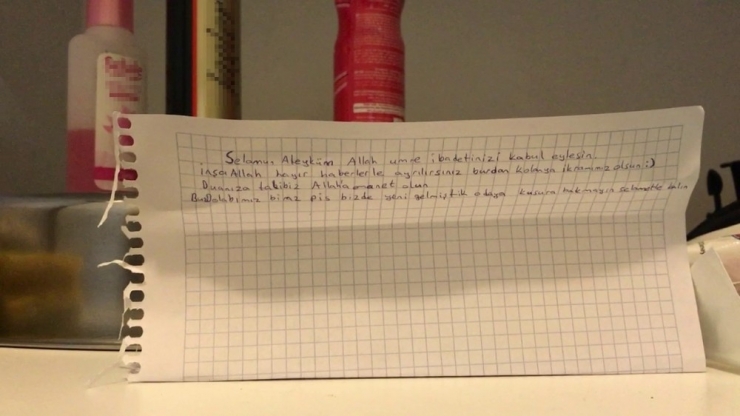 Selamun Aleyküm Allah umre ibadetinizi kabul eylesin.
inşaAllah hayır haberlerle ayrılırsınız burdan kolonya ikramımız olsun :)
Duanıza talibiz Allah'a emanet olun
Buzdolabımız biraz pis bizde yeni gelmiştik odaya kusura bakmayın selametle kalın